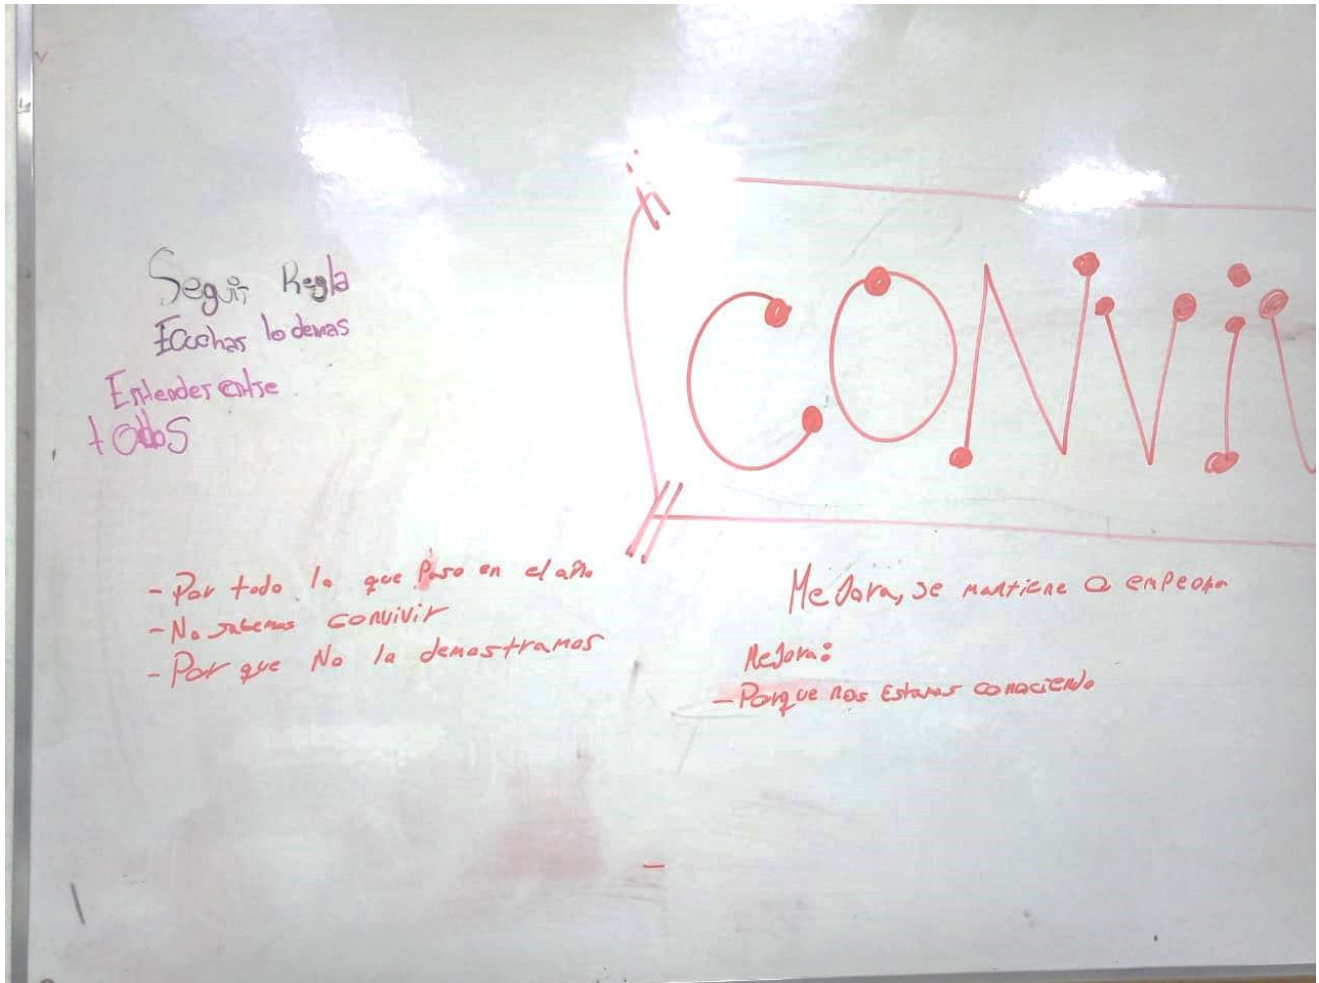 Seguir Regla
Ecuchar lo demas
Entender entre
todos
CONVi
- Por todo lo que Paso en el año
- No sabemos convivir
- Por que No lo demostramos
Mejora, se mantiene o enpeora
Mejora:
- Porque nos Estamos conociendo